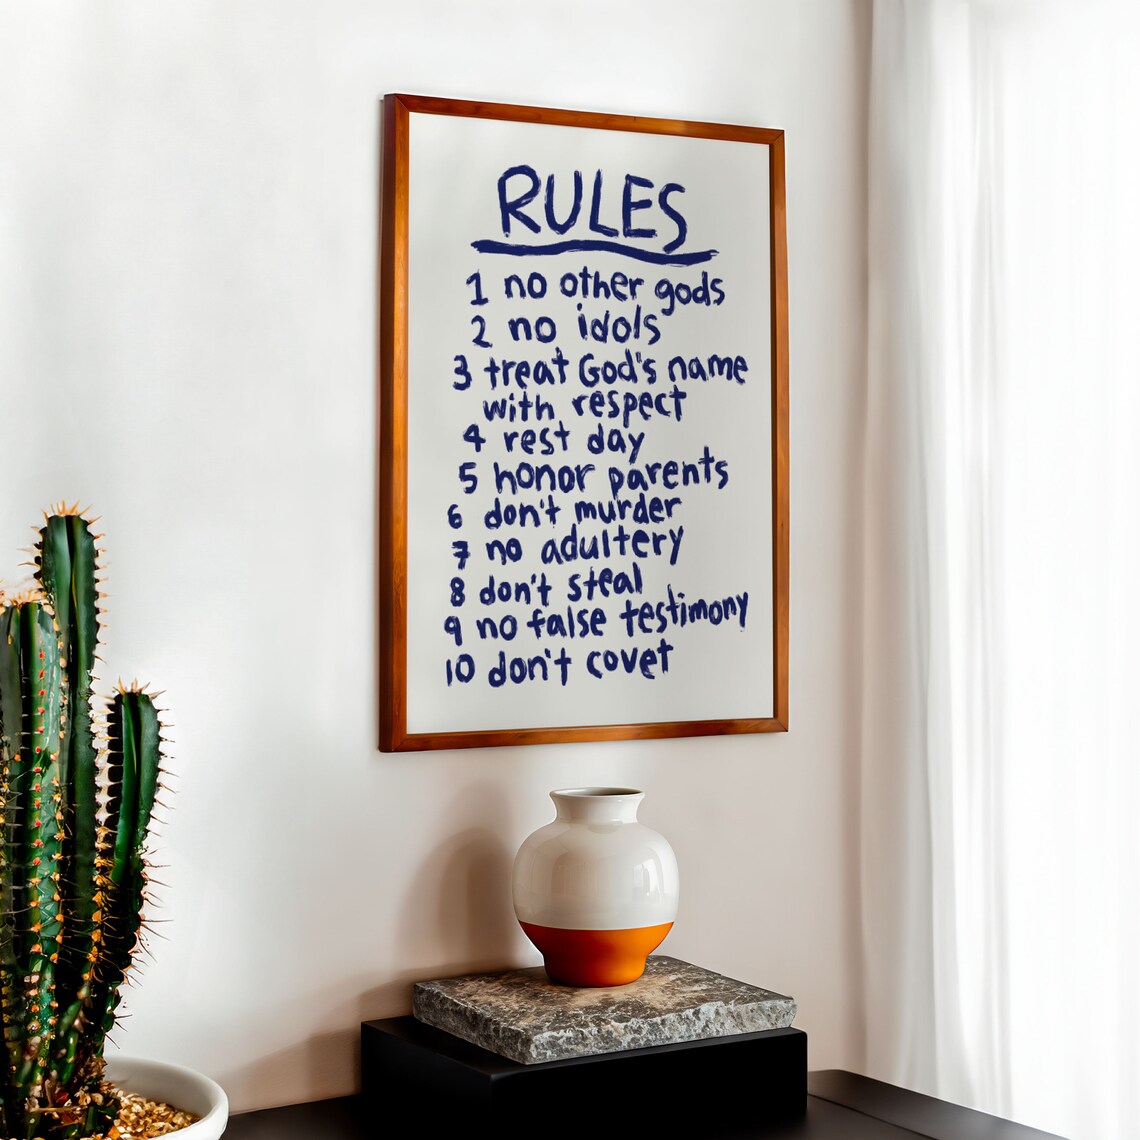 RULES
1 no other gods
2 no idols
3 treat God's name
with respect
4 rest day
5 honor parents
6 don't murder
7 no adultery
8 don't steal
9 no false testimony
10 don't covet